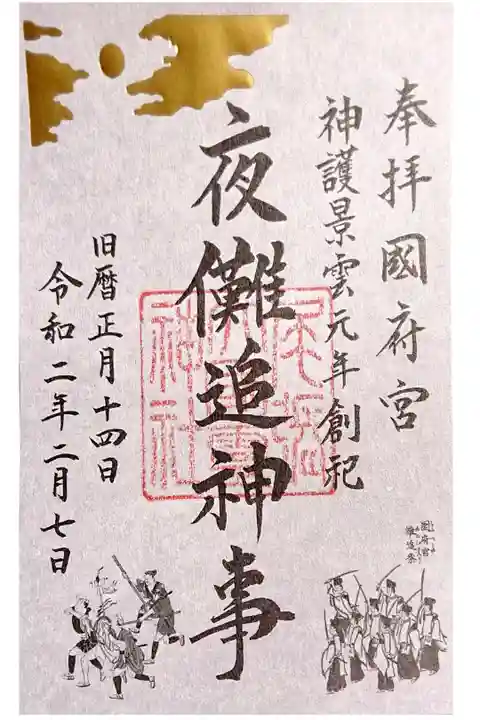 奉拝國府宮
神護景雲元年創祀
夜儺追神事
旧暦正月十四日
令和二年二月七日
國府宮
儺追祭